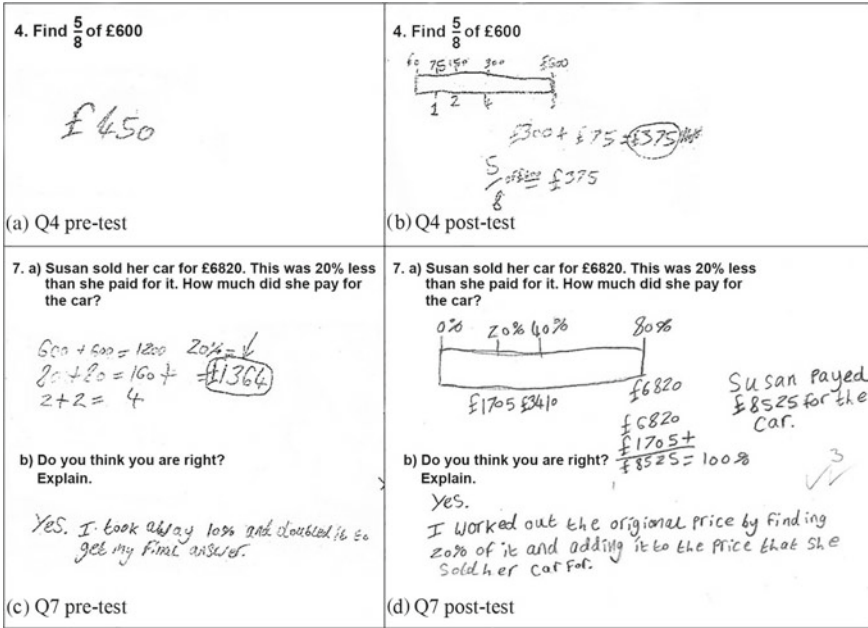 4. Find 5/8 of £600
£450
(a) Q4 pre-test
4. Find 5/8 of £600
£0 75 150 300 £600
1 2 4
£300 + £75 = £375
5/8 of £600 = £375
(b) Q4 post-test
7. a) Susan sold her car for £6820. This was 20% less
than she paid for it. How much did she pay for
the car?
600 + 600 = 1200 20% = ↓
80 + 80 = 160 + = £1364
2 + 2 = 4
b) Do you think you are right?
Explain.
Yes. I took away 10% and doubled it to
get my final answer.
(c) Q7 pre-test
7. a) Susan sold her car for £6820. This was 20% less
than she paid for it. How much did she pay for
the car?
0% 20% 40% 80%
£1705 £3410 £6820
Susan Payed
£8525 for the
car.
£6820
£1705 +
£8525 = 100%
3
b) Do you think you are right?
Explain.
Yes.
I worked out the origional price by finding
20% of it and adding it to the price that she
sold her car for.
(d) Q7 post-test